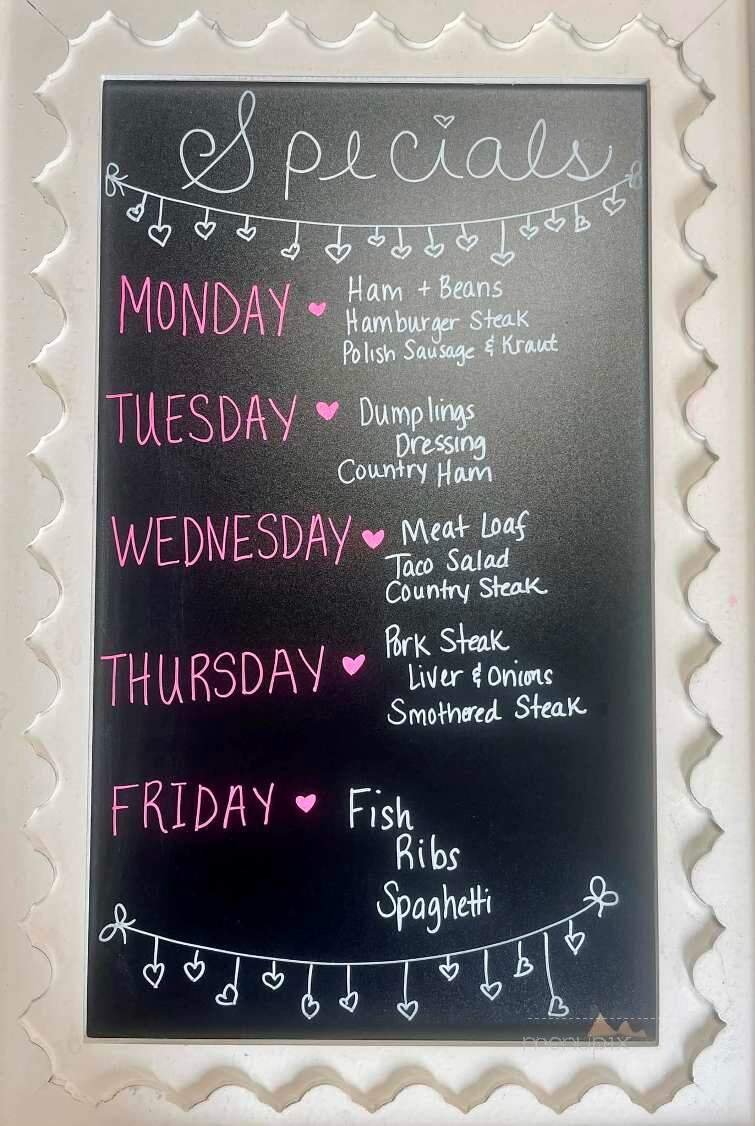 Specials
MONDAY ♥ Ham + Beans
Hamburger Steak
Polish Sausage & Kraut
TUESDAY ♥ Dumplings
Dressing
Country Ham
WEDNESDAY ♥ Meat Loaf
Taco Salad
Country Steak
THURSDAY ♥ Pork Steak
Liver & Onions
Smothered Steak
FRIDAY ♥ Fish
Ribs
Spaghetti
menupix